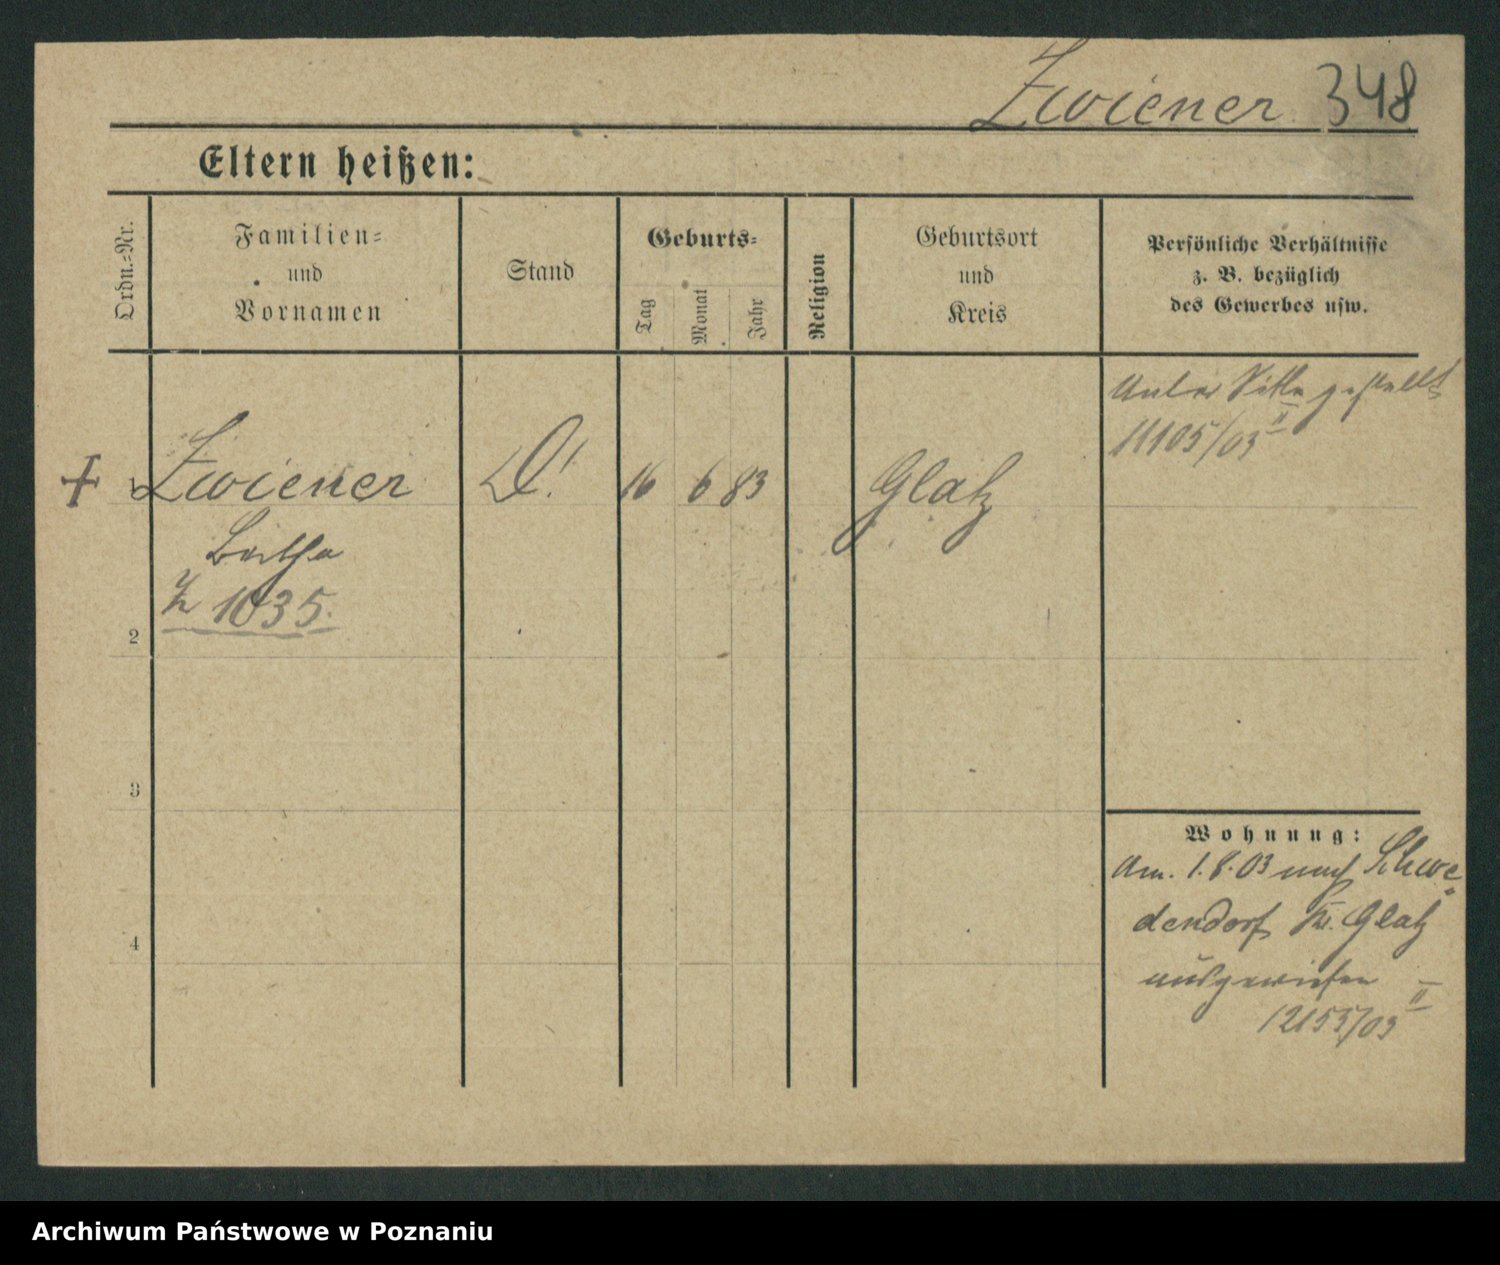 Zwiener 348
Eltern heißen:
Ordn.-Nr.
Familien-
und
Vornamen
Stand
Geburts-
Tag
Monat
Jahr
Religion
Geburtsort
und
Kreis
Persönliche Verhältnisse
z. B. bezüglich
des Gewerbes usw.
Unter Sitte gestellt
11105/03 II
1 Zwiener D! 16 6 83 Glatz
Bertha
1035.
2
3
4
Wohnung:
Am. 1.8.03 nach Schwe
dendorf Kr. Glatz
ausgewiesen
12155/03 II
Archiwum Państwowe w Poznaniu